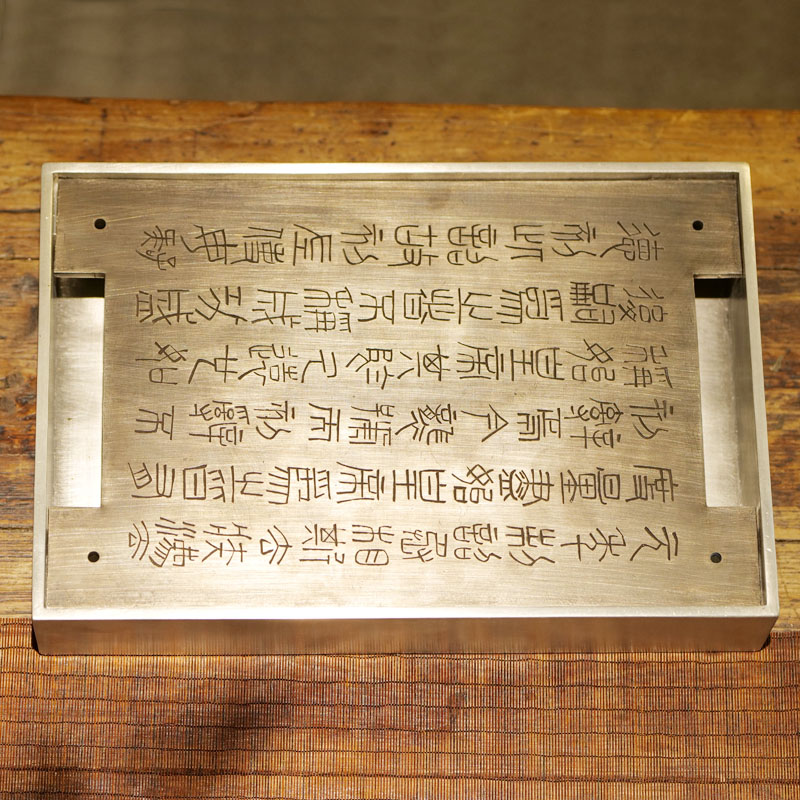 元年制詔丞相斯去疾灋
度量盡始皇帝為之皆有
刻辭焉今襲號而刻辭不
稱始皇帝其於久遠也如
後嗣為之者不稱成功盛
德刻此詔故刻左使毋疑